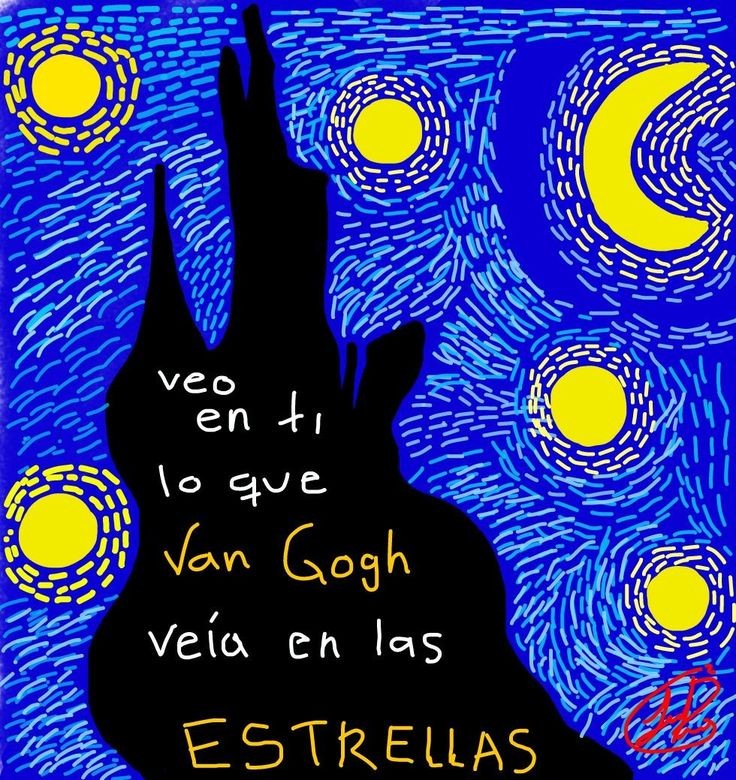 veo
en ti
lo que
Van Gogh
veía en las
ESTRELLAS